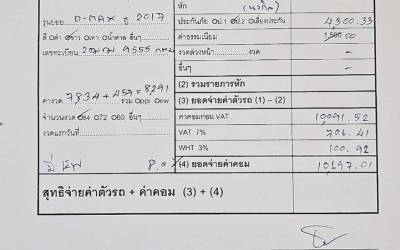 หัก
รุ่นย่อย D-MAX ปี 2017
ประกันภัย ป.1 ป.2 เลี่ยงประกัน 4,300.33
สี ดำ ขาว เทา น้ำตาล อื่นๆ
ค่าธรรมเนียม 1,500
เลขทะเบียน 9555 กทม
งวดล่วงหน้า งวด -
อื่นๆ -
(2) รวมรายการหัก
ค่างวด 7834 + 457 = 8291
รวม Oppi Oew
(3) ยอดจ่ายค่าตัวรถ (1) – (2)
จำนวนงวด 84 072 060 อื่นๆ
ค่าคอมก่อน VAT 10091.52
งวดแรกวันที่
VAT 7% 706.41
WHT 3% 100.92
8.0
(4) ยอดจ่ายค่าคอม 10697.01
สุทธิจ่ายค่าตัวรถ + ค่าคอม (3) + (4)